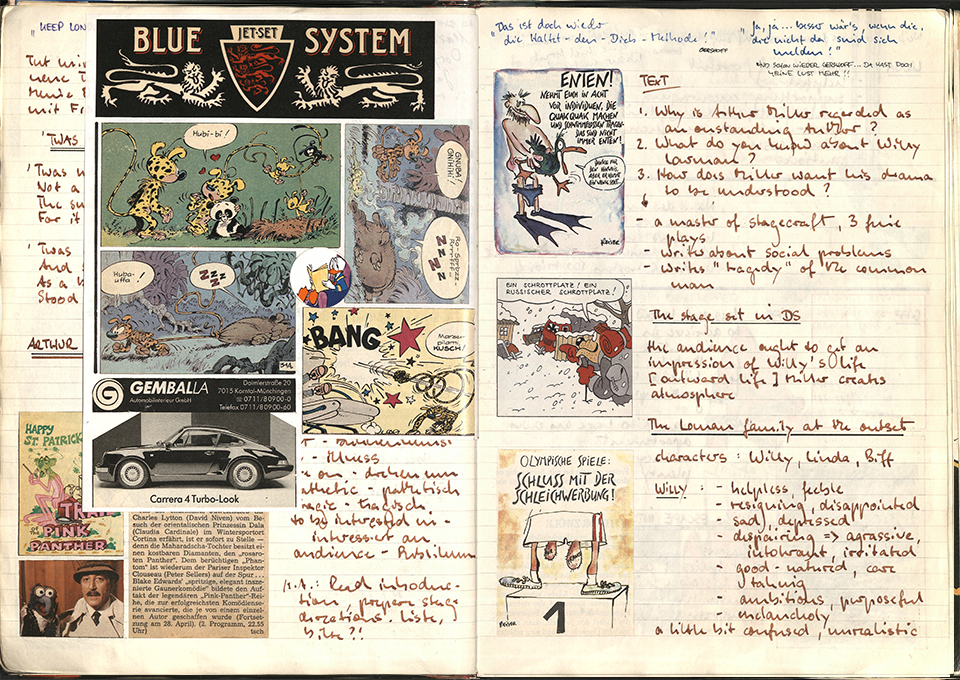 "KEEP LON
BLUE JET-SET SYSTEM
'TWAS
'Twas
Not a
The su
For it
'Twas
And
As a
Stood
ARTHUR
Hubi-bi!
GNUBA!
ONIHIHI!
Huba-uffa!
ZZZ
ZZZZ
BANG
Marsu-
pilami,
KUSCH!
GEMBALLA
Automobilinterieur GmbH
Daimlerstraße 20
7015 Korntal-Münchingen
Telefon 07 11/8 09 00-0
Telefax 07 11/8 09 00-60
Carrera 4 Turbo-Look
HAPPY
ST. PATRICK
PINK
PANTHER
Charles Lytton (David Niven) vom Be-
such der orientalischen Prinzessin Dala
(Claudia Cardinale) im Wintersportort
Cortina erfährt, ist er sofort zur Stelle —
denn die Maharadscha-Tochter besitzt ei-
nen kostbaren Diamanten, den „rosaro-
ten Panther". Dem berüchtigten „Phan-
tom" ist wiederum der Pariser Inspektor
Clouseau (Peter Sellers) auf der Spur . . .
Blake Edwards' „spritzige, elegant insze-
nierte Gaunerkomödie" bildete den Auf-
takt der legendären „Pink-Panther"-Rei-
he, die zur erfolgreichsten Komödienserie
avancierte, die je von einem einzel-
nen Autor geschaffen wurde (Fortset-
zung am 28. April). (2. Programm, 22.55
Uhr) tsch
- Muss
- pathetisch
- tragisch
to be interested in -
interessiert an
audience - Publikum
H.A.: Read introduc-
tion, prepare stage
directions. Liste,
bitte?!
"Das ist doch wieder
die Haltet-den-Dieb-Methode!"
GERSHOFF
"Ja, ja... besser wär's, wenn die,
die nicht da sind sich
melden!"
UND SCHON WIEDER GERSHOFF... DA HAST DOCH
KEINE LUST MEHR!!
ENTEN!
NEHMT EUCH IN ACHT
VOR INDIVIDUEN, DIE
QUAK QUAK MACHEN
UND SCHWIMMFLOSSEN TRAGEN.
DAS SIND NICHT
IMMER ENTEN!
REISER
EIN SCHROTTPLATZ! EIN
RUSSISCHER SCHROTTPLATZ!
OLYMPISCHE SPIELE:
SCHLUSS MIT DER
SCHLEICHWERBUNG!
1
REISER
TEXT
1. Why is Arthur Miller regarded as
an outstanding Author?
2. What do you know about Willy
Lowman?
3. How does Miller want his drama
to be understood?
- a master of stagecraft, 3 fine
plays
- writes about social problems
- writes "tragidy" of the common
man
The stage set in DS
the audience ought to get an
impression of Willy's life
[outward life] Miller creates
atmosphere
The Loman family at the outset
characters: Willy, Linda, Biff
Willy: - helpless, feeble
- resigning, disappointed
- sad, depressed
- despairing => agrassive,
intolerant, irritated
- good-natured, care
taking
- ambitious, purposeful
- melancholy
a little bit confused, unrealistic